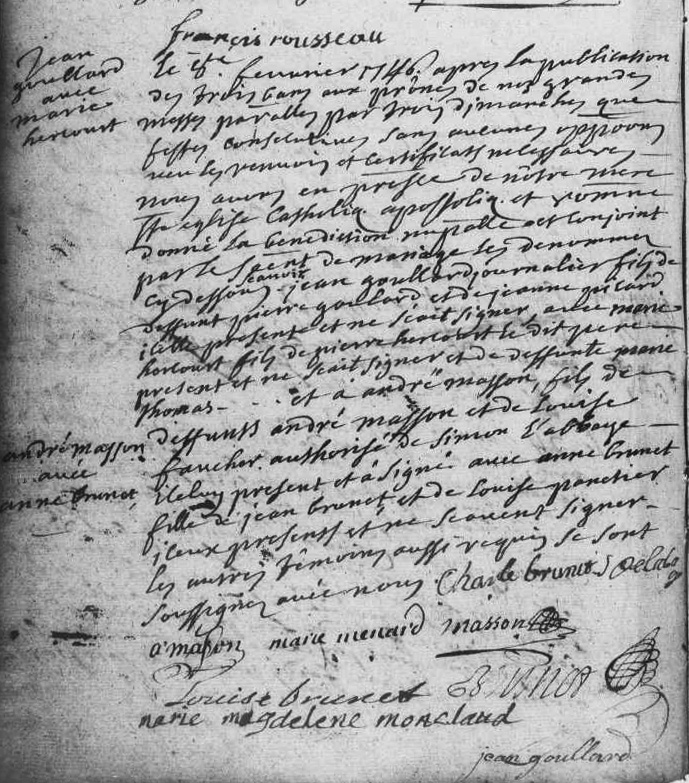 françois rousseau
jean
goullard
avec
marie
hercourt
le 8e. fevrier 1746. apres la publication
des trois bans aux prônes de nos grandes
messes par trois dimanches que
festes consecutives sans aucunes opposons
veu les renvois et certificats necessaires
nous avons en presce de nôtre mere
ste eglise Catholiq. apostoliq. et romne
donné la benediction nuptialle et conjoint
par le Sacnt de mariage les denommez
cy dessous scavoir jean goullard journalier fils de
deffunt pierre goullard et de jeanne picard
icelle presente et ne scait signer, avec marie
hercourt fille de pierre hercourt le dit pere
present et ne scait signer et de deffunte marie
Thomas - . . . et à andré masson, fils de
andré masson
avec
anne brunet
deffunts andré masson et de Louise
faucher authorisé de simon L'abbaye
iceluy present et a signé avec anne brunet
fille de jean brunet et de Louise panetier
iceux presents et ne scavent signer
les autres témoins aussi requis se sont
soussignez avec nous. Charle brunet
a masson marie menard masson
Louise brunet Brunet
marie magdelene monclaud
jean goullard